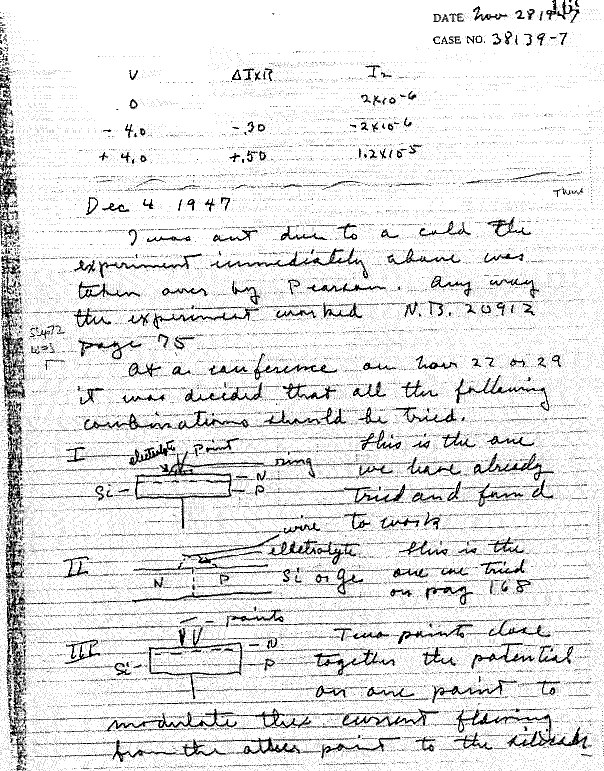 169
DATE Nov 28 1947
CASE NO. 38139-7
V ΔI×R I₂
0 2×10⁻⁶
- 4.0 -.30 -2×10⁻⁶
+ 4.0 +.50 1.2×10⁻⁵
Dec 4 1947
I was out due to a cold the
experiment immediately above was
taken over by Pearson. Any way
the experiment worked N.B. 20912
page 75
At a conference on Nov 22 or 29
it was decided that all the following
combinations should be tried.
I electrolyte Point ring This is the one
Si N P we have already
tried and found
wire to work
II electrolyte This is the
N P Si or Ge one we tried
on pag 168
points
III Si N P Two points close
together the potential
on one point to
modulate the current flowing
from the other point to the